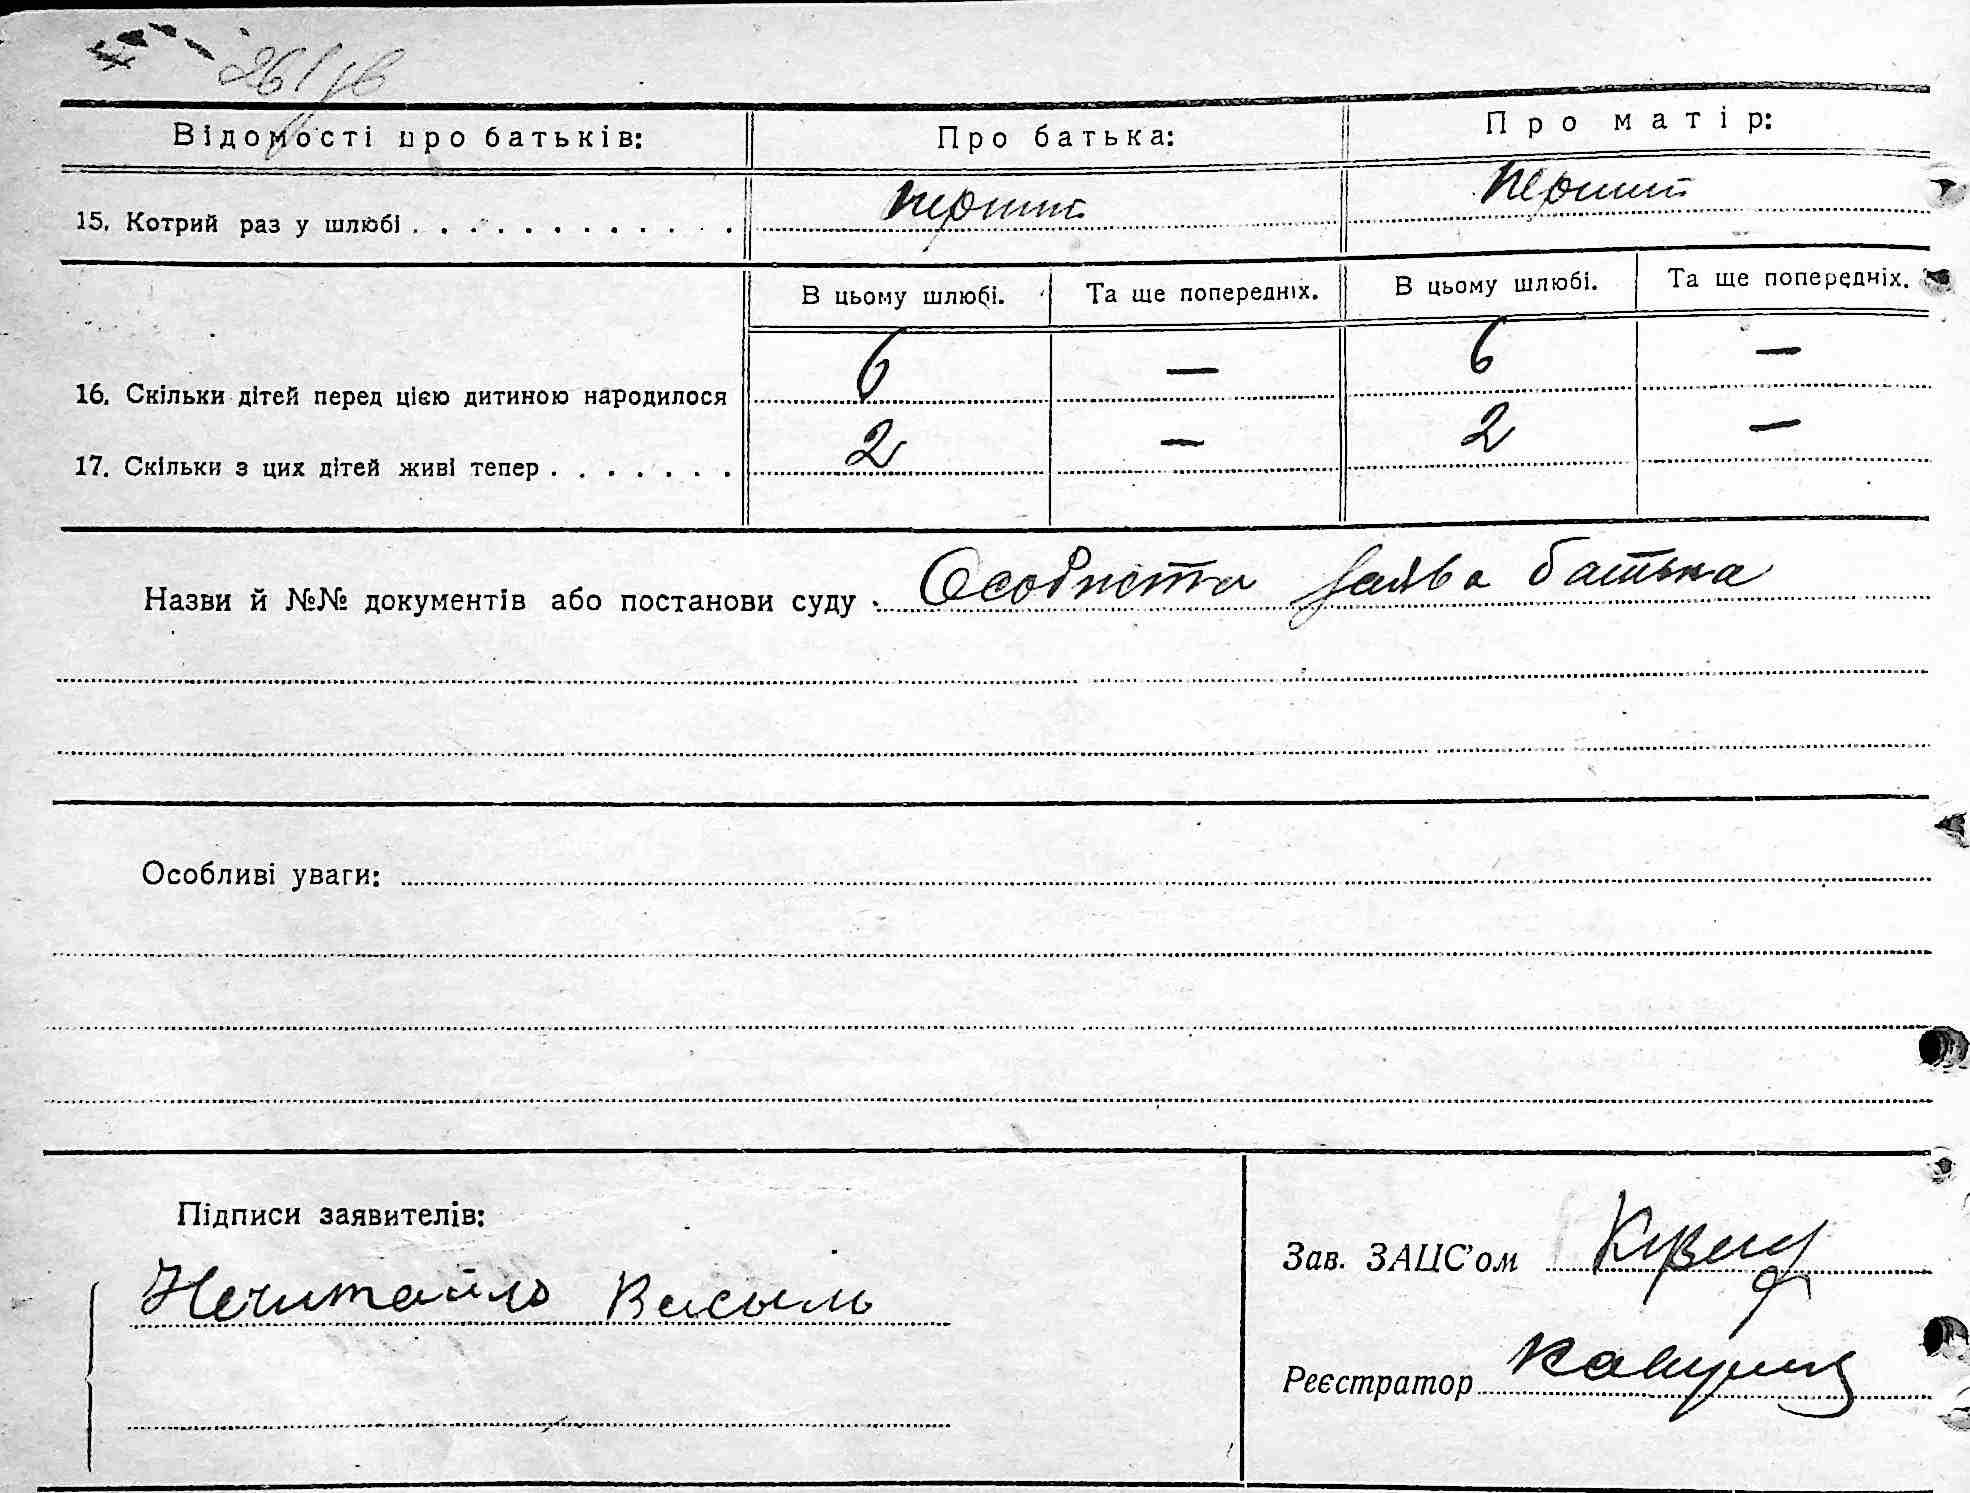 261
Відомості про батьків: Про батька: Про матір:
15. Котрий раз у шлюбі . . . . . . . . . . . . перший перший
В цьому шлюбі. Та ще попередніх. В цьому шлюбі. Та ще попередніх.
16. Скільки дітей перед цією дитиною народилося 6 — 6 —
17. Скільки з цих дітей живі тепер . . . . . . . 2 — 2 —
Назви й №№ документів або постанови суду . Особиста заява батька
Особливі уваги:
Підписи заявителів:
Зав. ЗАЦС'ом
Нечитайло Василь
Реєстратор